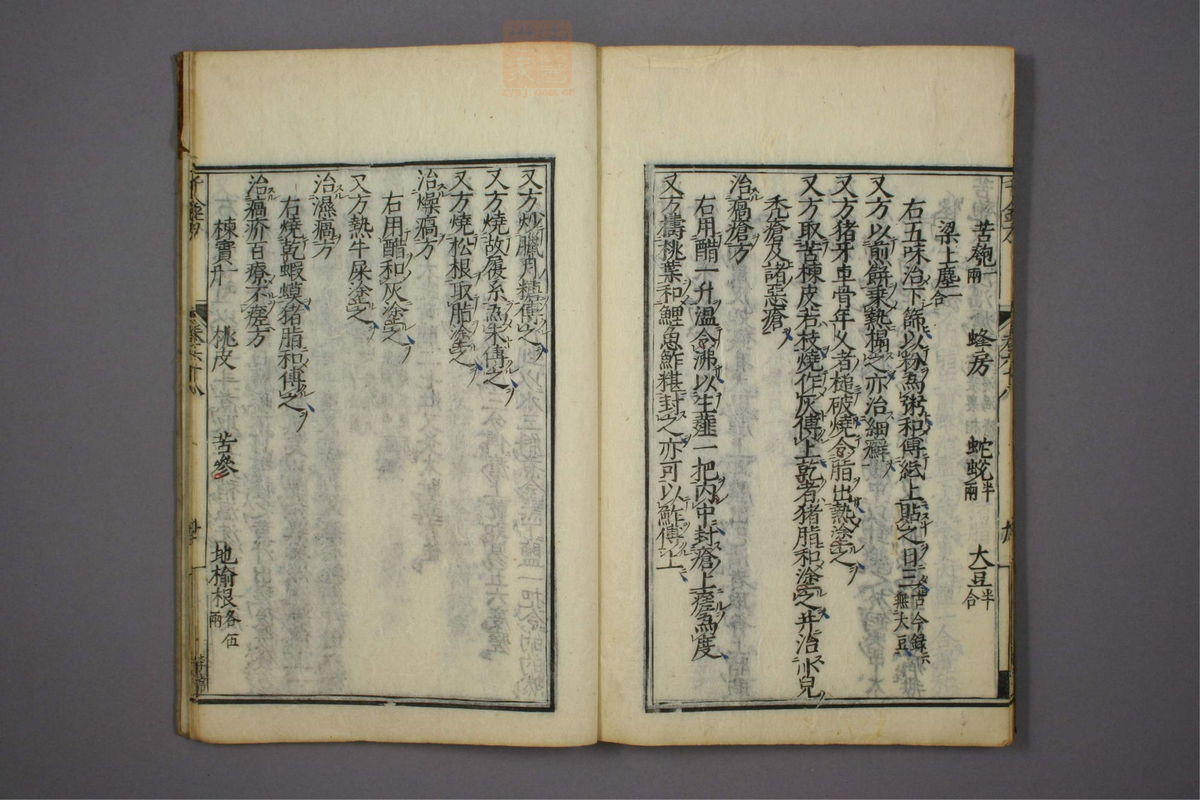 苦瓠一兩 蜂房 蛇蛻半兩 大豆半合
梁上塵一合
右五味治下篩以粉為粥和傅紙上貼之日三古今錄云無大豆
又方以煎餅乘熱搨之亦治細癬
又方猪牙車骨年久者槌破燒令脂出熱塗之
又方取苦楝皮若枝燒作灰傅上乾者猪脂和塗之并治小兒
禿瘡及諸惡瘡
治瘑瘡方
右用醋一升溫令沸以生薤一把內中封瘡上瘥為度
又方擣桃葉和鯉魚鮓糝封之亦可以鮓傅上
又方炒臘月糖傅之
又方燒故履系為末傅之
又方燒松根取脂塗之
治燥瘑方
右用醋和灰塗之
又方熱牛屎塗之
治濕瘑方
右燒乾蝦蟆猪脂和傅之
治瘑疥百療不瘥方
楝實一升 桃皮 苦參 地榆根各伍兩